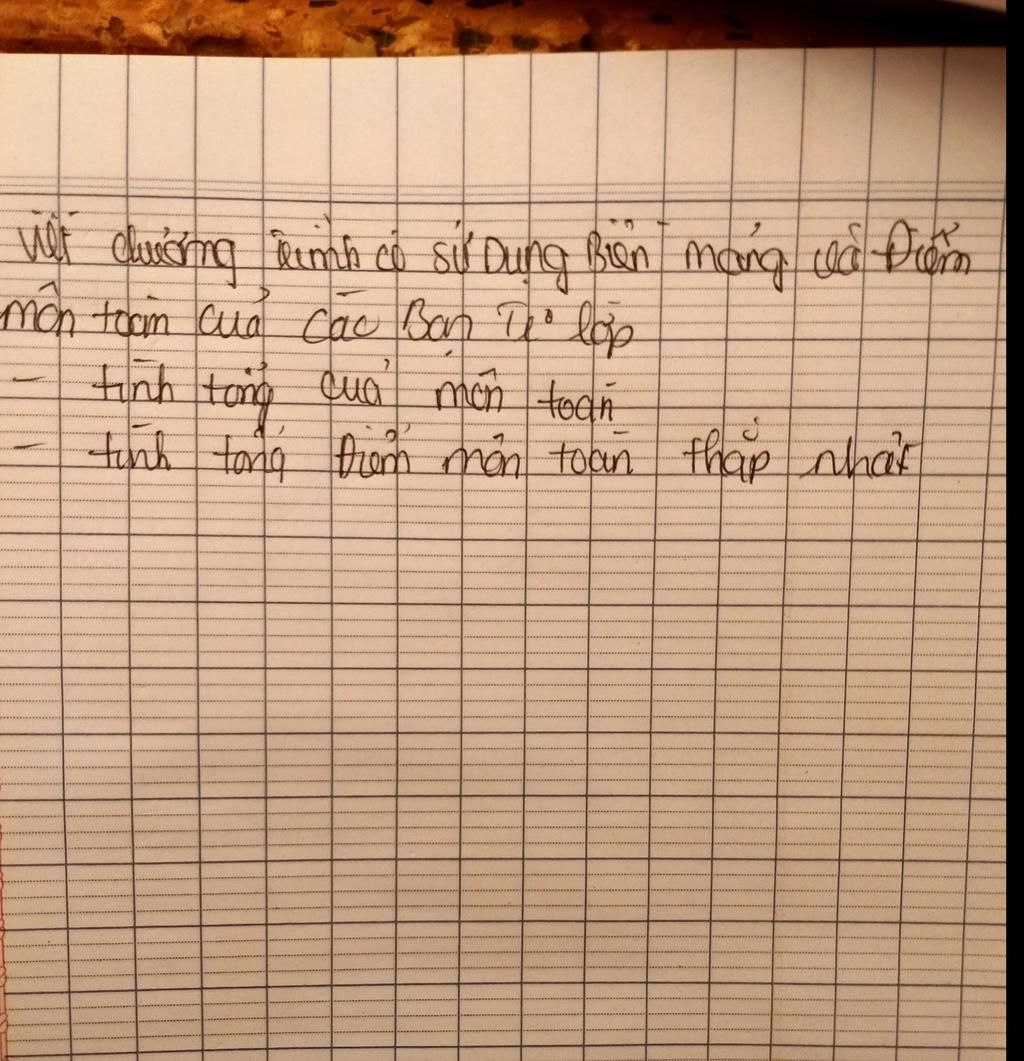 Viết chương trình có sử Dụng Biến mảng và Điểm
môn toán của các Bạn lớp
- tính tổng của môn toán
- tính tổng Điểm môn toán thấp nhất